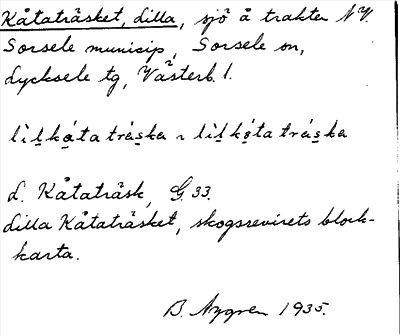 Kåtaträsket, Lilla, sjö å trakten NV.
Sorsele municip, Sorsele sn,
Lycksele tg, Västerb. l.
lìl̥kǻta trä̀ska ~ lìl̥kǻta trä̀ska
L. Kåtaträsk, G. 33.
Lilla Kåtaträsket, skogsrevirets block-
karta.
B. Nygren 1935.